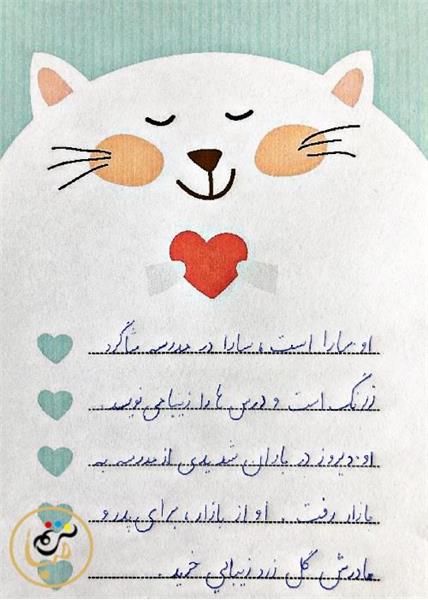 او سارا است ، سارا در مدرسه شاگرد
زرنگ است و درس ها را زیبا می نویسد .
او دیروز در باران شدیدی از مدرسه به
بازار رفت . او از بازار، برای پدر و
مادرش گل زرد زیبایی خرید .